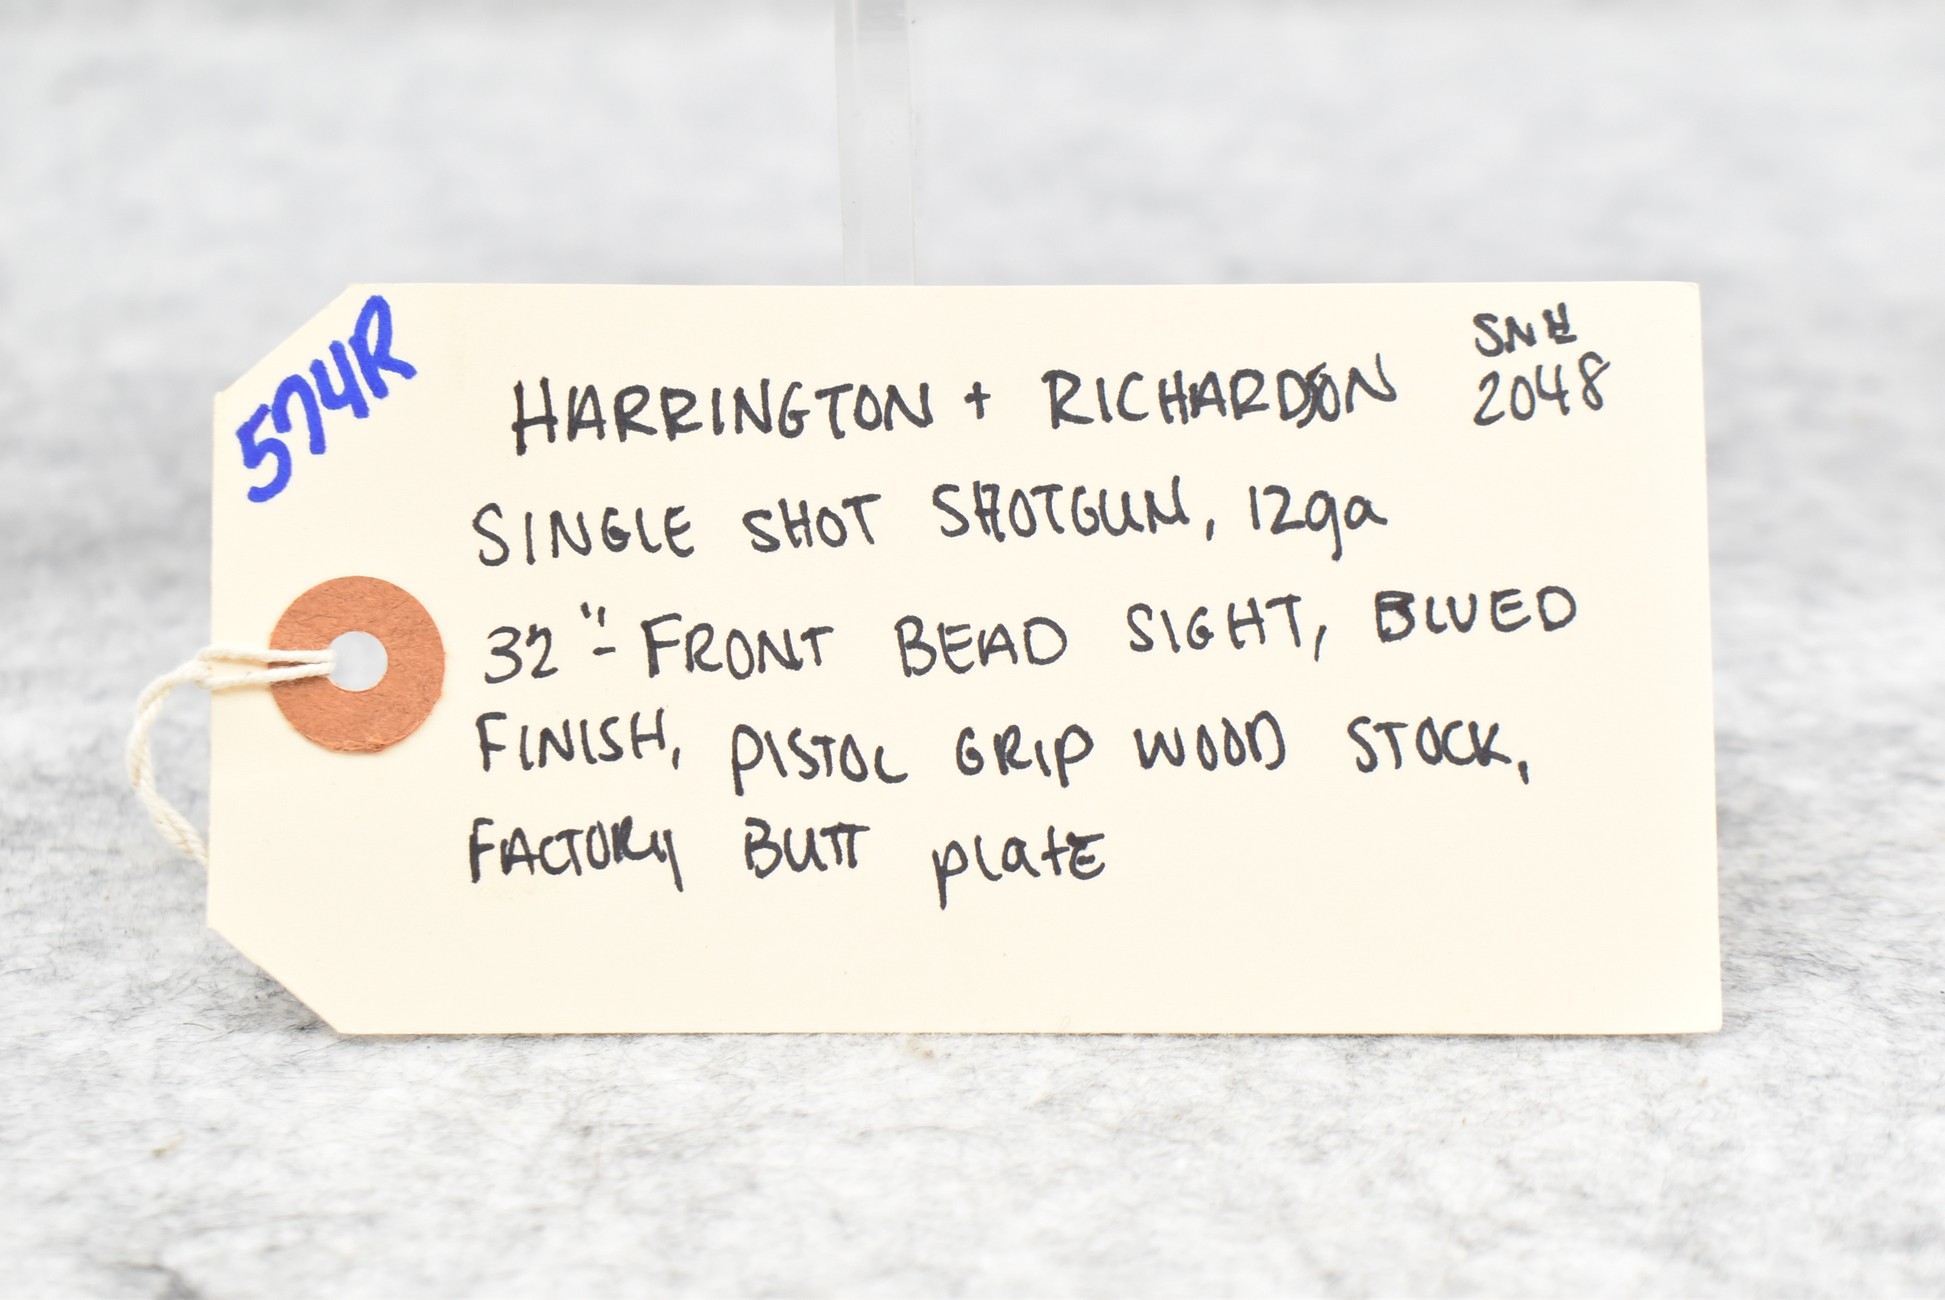 574R
HARRINGTON + RICHARDSON
SN#
2048
SINGLE SHOT SHOTGUN, 12ga
32"- FRONT BEAD SIGHT, BLUED
FINISH, PISTOL GRIP WOOD STOCK,
FACTORY BUTT plate